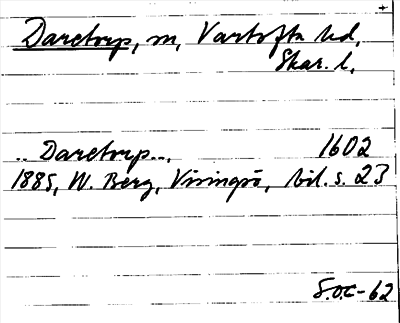 Daretorp, sn, Vartofta hd,
Skar. l.
.. Daretorp.., 1602
1885, W. Berg, Visingsö, bil. s. 23
S.O.C-62